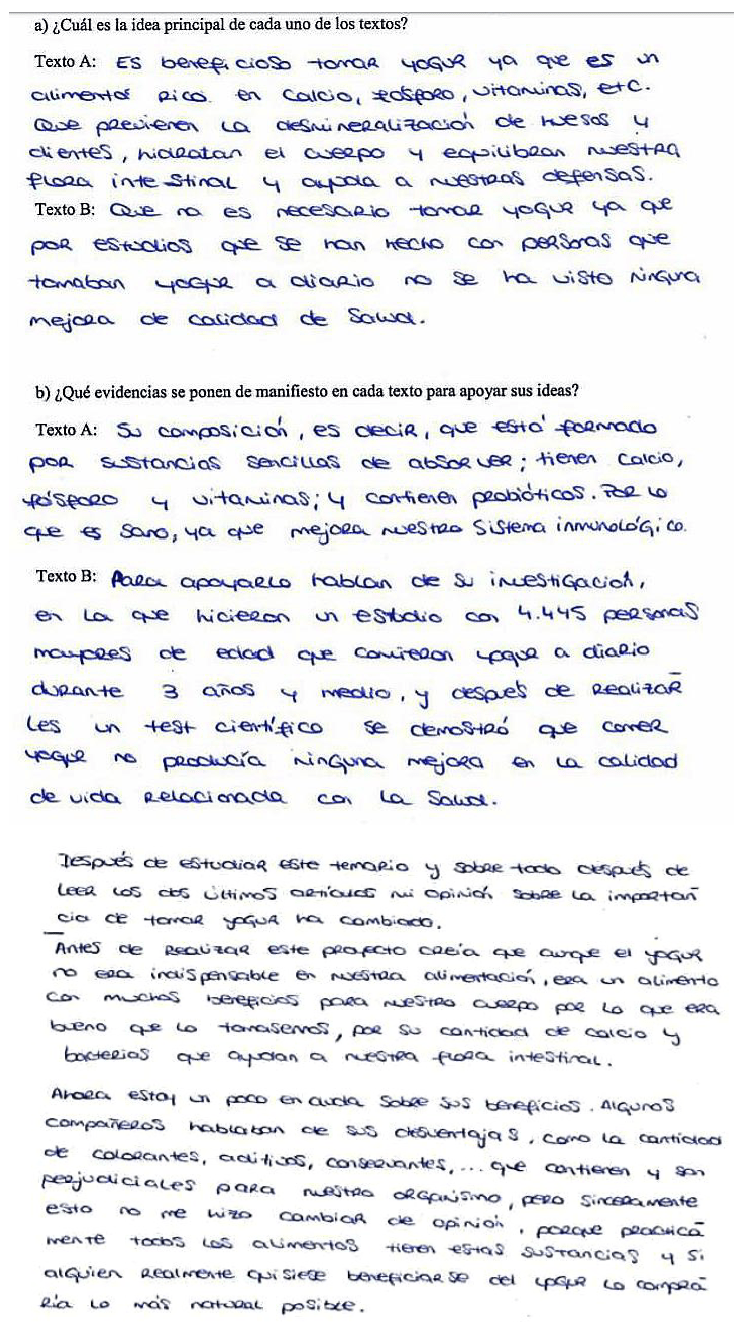 a) ¿Cuál es la idea principal de cada uno de los textos?
Texto A: Es beneficioso tomar yogur ya que es un
alimento rico en calcio, fósforo, vitaminas, etc.
Que previenen la desmineralización de huesos y
dientes, hidratan el cuerpo y equilibran nuestra
flora intestinal y ayuda a nuestras defensas.
Texto B: Que no es necesario tomar yogur ya que
por estudios que se han hecho con personas que
tomaban yogur a diario no se ha visto ninguna
mejora de calidad de salud.
b) ¿Qué evidencias se ponen de manifiesto en cada texto para apoyar sus ideas?
Texto A: Su composición, es decir, que está formado
por sustancias sencillas de absorver; tienen calcio,
fósforo y vitaminas; y contienen probióticos. Por lo
que es sano, ya que mejora nuestro sistema inmunológico.
Texto B: Para apoyarlo hablan de su investigación,
en la que hicieron un estudio con 4.445 personas
mayores de edad que comieron yogur a diario
durante 3 años y medio, y después de realizar-
les un test científico se demostró que comer
yogur no producía ninguna mejora en la calidad
de vida relacionada con la salud.
Después de estudiar este temario y sobre todo después de
leer los dos últimos artículos mi opinión sobre la importan-
cia de tomar yogur ha cambiado.
Antes de realizar este proyecto creía que aunque el yogur
no era indispensable en nuestra alimentación, era un alimento
con muchos beneficios para nuestro cuerpo por lo que era
bueno que lo tomasemos, por su cantidad de calcio y
bacterias que ayudan a nuestra flora intestinal.
Ahora estoy un poco en duda sobre sus beneficios. Algunos
compañeros hablaban de sus desventajas, como la cantidad
de colorantes, aditivos, conservantes,... que contienen y son
perjudiciales para nuestro organismo, pero sinceramente
esto no me hizo cambiar de opinión, porque practica-
mente todos los alimentos tienen estas sustancias y si
alguien realmente quisiese beneficiarse del yogur lo compra-
ría lo más natural posible.